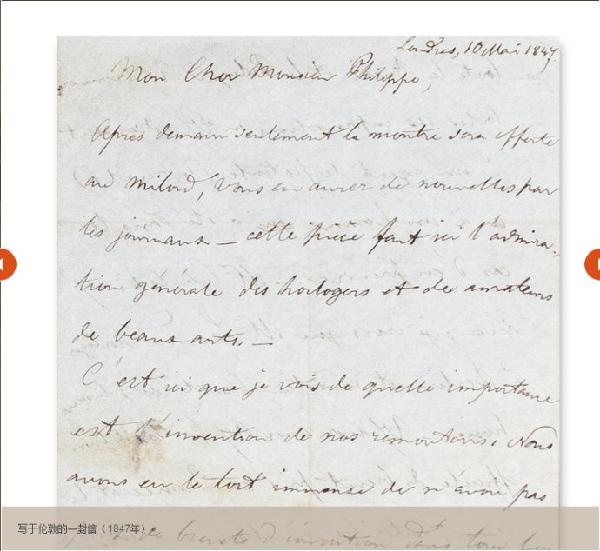 Londres, 10 Mai 1847.
Mon Cher Monsieur Philippe,
Après demain seulement la montre sera offerte
au milord, vous en aurez de nouvelles par
les journaux — cette pièce fait ici l'admira-
tion générale des horlogers et de amateurs
de beaux arts. —
C'est ici que je vois de quelle importance
est l'invention de nos remontoirs. Nous
avons eu le tort immense de n'avoir pas
brevets d'invention dans tous les
写于伦敦的一封信（1847年）。